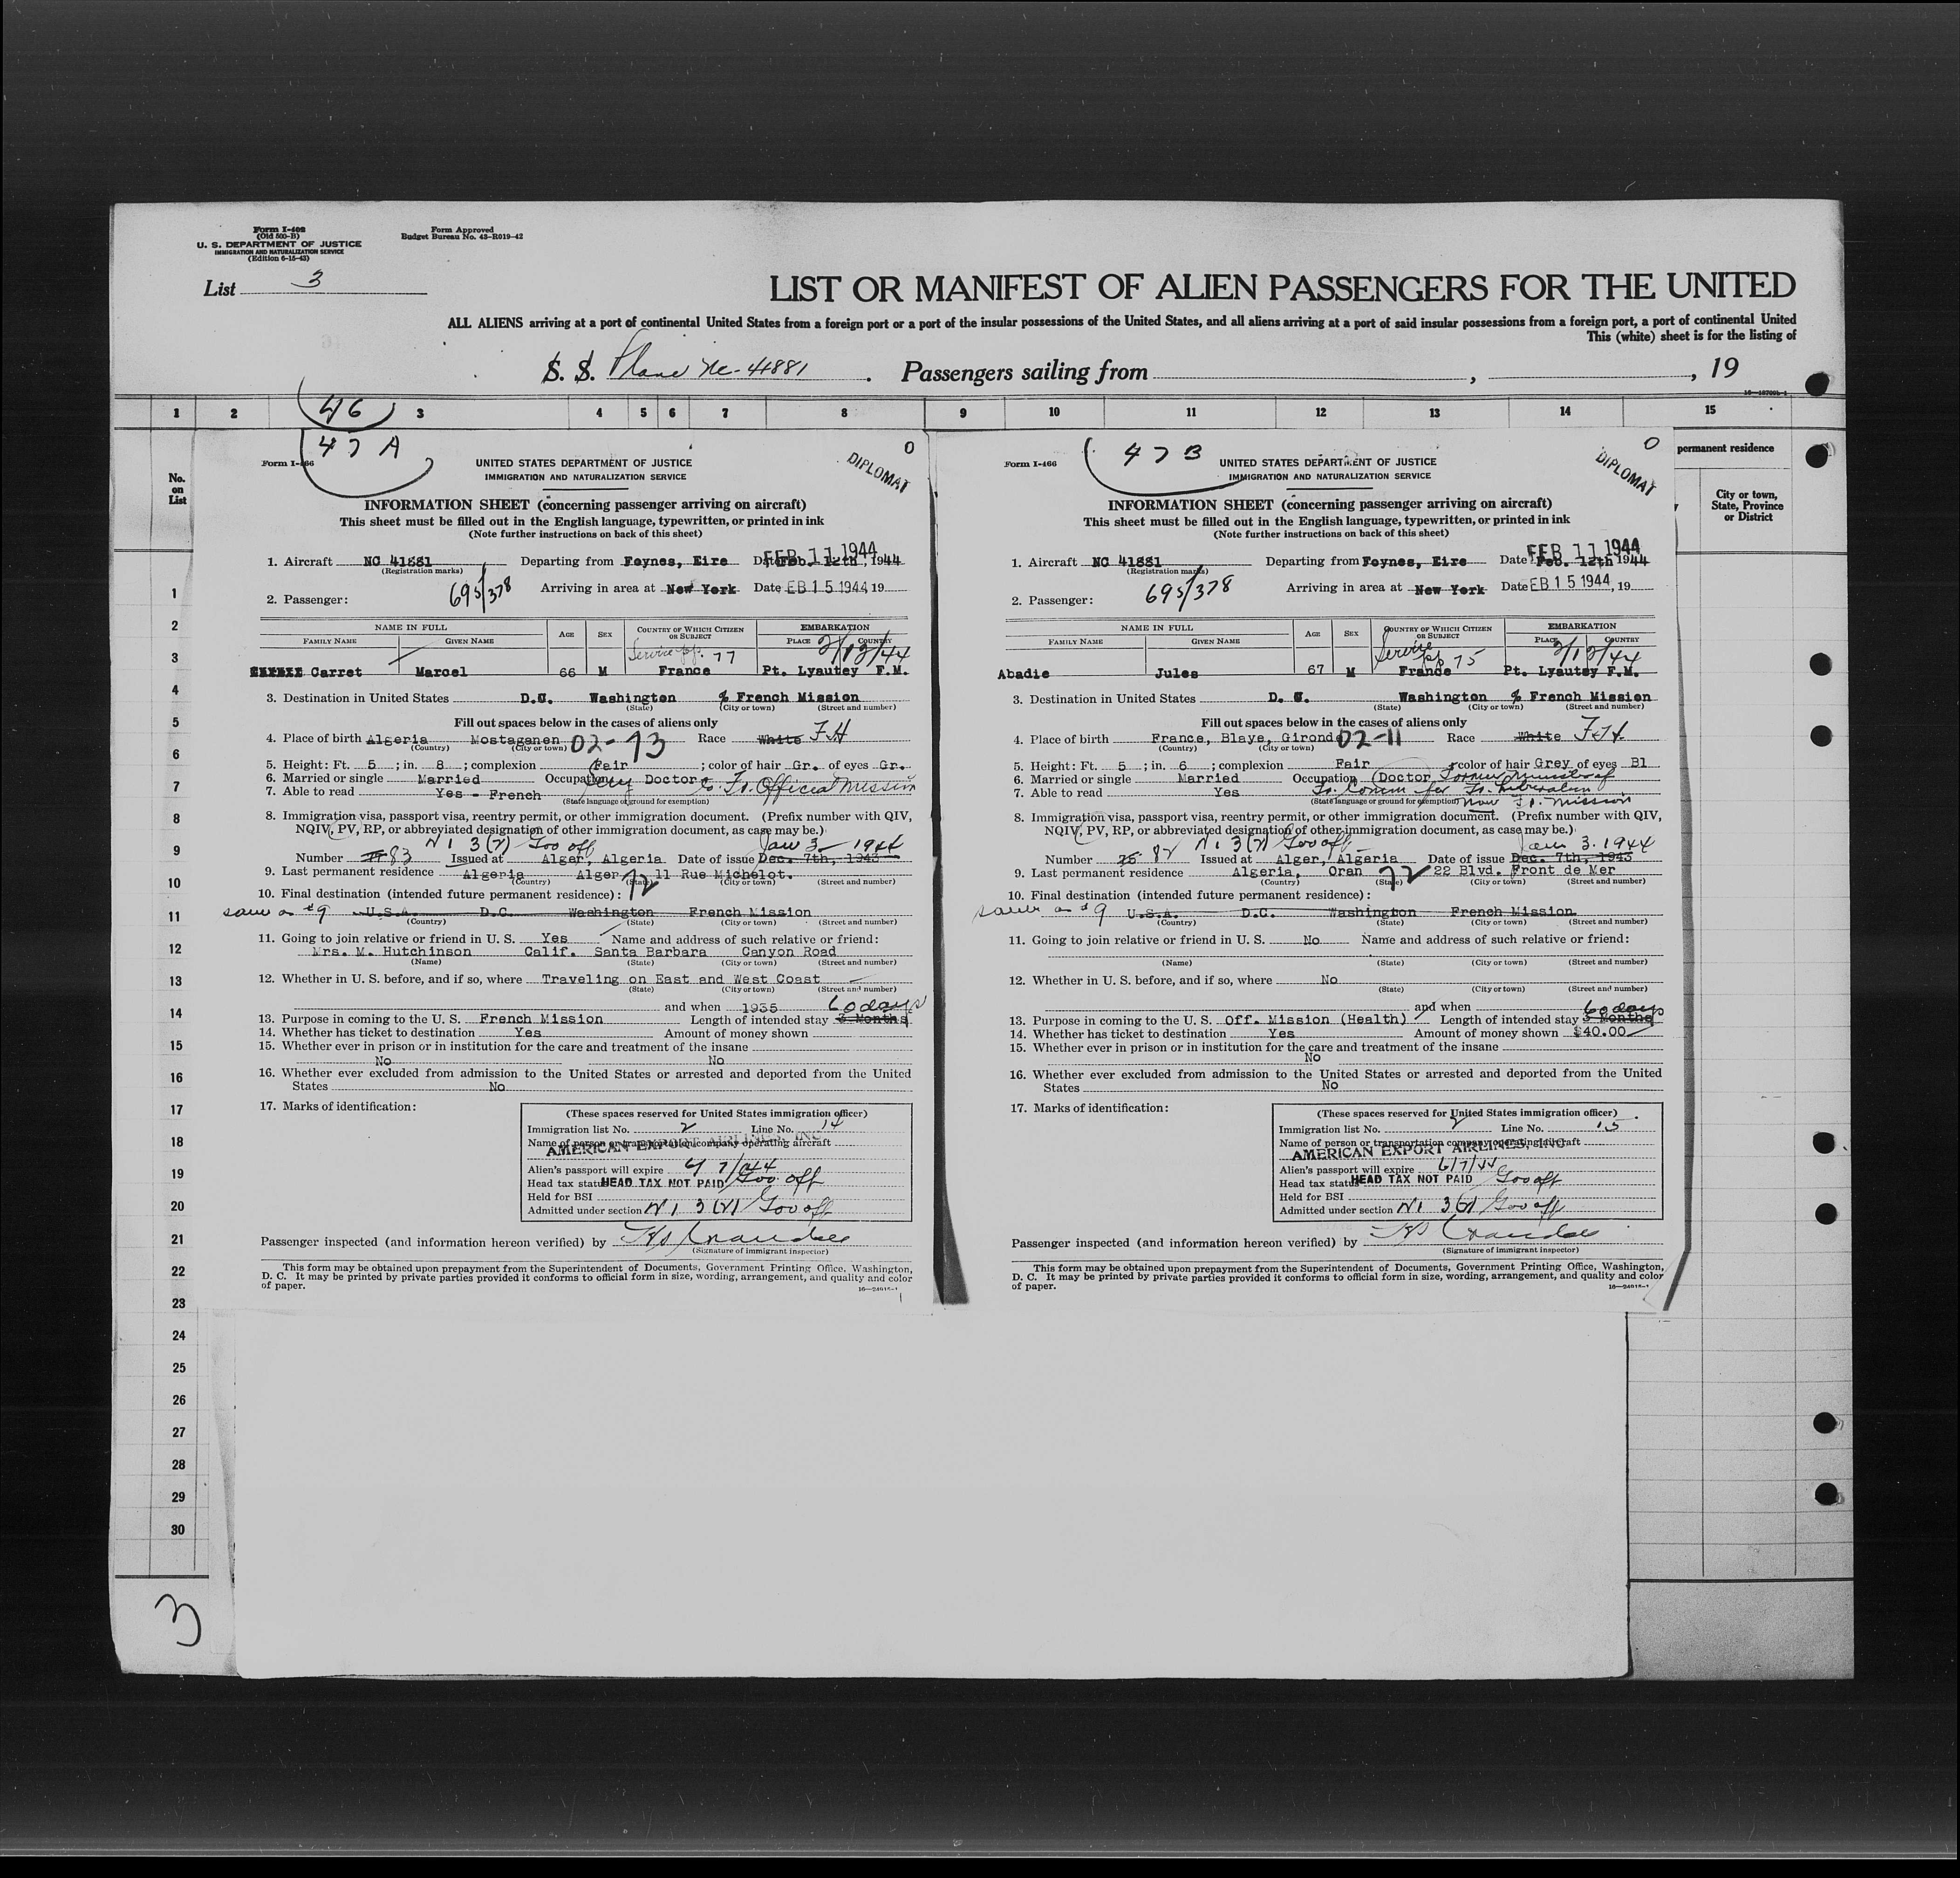 Form I-402
(Old 500-B)
U. S. DEPARTMENT OF JUSTICE
IMMIGRATION AND NATURALIZATION SERVICE
(Edition 6-15-43)
Form Approved
Budget Bureau No. 43-R019-42
List 3
LIST OR MANIFEST OF ALIEN PASSENGERS FOR THE UNITED
ALL ALIENS arriving at a port of continental United States from a foreign port or a port of the insular possessions of the United States, and all aliens arriving at a port of said insular possessions from a foreign port, a port of continental United
This (white) sheet is for the listing of
S. S. Plane Nc-41881. Passengers sailing from , , 19
1 2 46 3 4 5 6 7 8 9 10 11 12 13 14 15
No. on List
permanent residence
City or town, State, Province or District
47 A
0
DIPLOMAT
Form I-466
UNITED STATES DEPARTMENT OF JUSTICE
IMMIGRATION AND NATURALIZATION SERVICE
INFORMATION SHEET (concerning passenger arriving on aircraft)
This sheet must be filled out in the English language, typewritten, or printed in ink
(Note further instructions on back of this sheet)
FEB 11 1944
1. Aircraft NC 41881 Departing from Foynes, Eire Date Feb. 12th, 1944
(Registration marks)
Arriving in area at New York Date FEB 15 1944, 19
2. Passenger: 695/378
NAME IN FULL AGE SEX COUNTRY OF WHICH CITIZEN OR SUBJECT EMBARKATION
FAMILY NAME GIVEN NAME PLACE COUNTRY
Service pp. 77 2/12/44
Carret Marcel 66 M France Pt. Lyautey F.M.
3. Destination in United States D.C. Washington % French Mission
(State) (City or town) (Street and number)
Fill out spaces below in the cases of aliens only
4. Place of birth Algeria Mostaganen 02-73 Race White FH
(Country) (City or town)
5. Height: Ft. 5; in. 8; complexion Fair; color of hair Gr. of eyes Gr.
6. Married or single Married Occupation Doctor Fr. Official Mission
7. Able to read Yes - French
(State language or ground for exemption)
8. Immigration visa, passport visa, reentry permit, or other immigration document. (Prefix number with QIV,
NQIV, PV, RP, or abbreviated designation of other immigration document, as case may be.)
3(7) Gov off Jan 3 - 1944
Number 83 Issued at Alger, Algeria Date of issue Dec. 7th, 1943
9. Last permanent residence Algeria Alger 72 11 Rue Michelot.
(Country) (State) (City or town) (Street and number)
10. Final destination (intended future permanent residence):
same as #9 U.S.A. D.C. Washington French Mission
(Country) (State) (City or town) (Street and number)
11. Going to join relative or friend in U. S. Yes Name and address of such relative or friend:
Mrs. M. Hutchinson Calif. Santa Barbara Canyon Road
(Name) (State) (City or town) (Street and number)
12. Whether in U. S. before, and if so, where Traveling on East and West Coast
(State) (City or town) (Street and number)
and when 1935 60 days
13. Purpose in coming to the U. S. French Mission Length of intended stay 3 Months
14. Whether has ticket to destination Yes Amount of money shown
15. Whether ever in prison or in institution for the care and treatment of the insane
No No
16. Whether ever excluded from admission to the United States or arrested and deported from the United
States No
17. Marks of identification:
(These spaces reserved for United States immigration officer)
Immigration list No. 2 Line No. 14
Name of person or transportation company operating aircraft
AMERICAN EXPORT AIRLINES, INC
Alien's passport will expire 6/7/44
Head tax status HEAD TAX NOT PAID Gov. off
Held for BSI
Admitted under section 3(7) Gov off
Passenger inspected (and information hereon verified) by
(Signature of immigrant inspector)
This form may be obtained upon prepayment from the Superintendent of Documents, Government Printing Office, Washington,
D. C. It may be printed by private parties provided it conforms to official form in size, wording, arrangement, and quality and color
of paper.
47 B
0
DIPLOMAT
Form I-466
UNITED STATES DEPARTMENT OF JUSTICE
IMMIGRATION AND NATURALIZATION SERVICE
INFORMATION SHEET (concerning passenger arriving on aircraft)
This sheet must be filled out in the English language, typewritten, or printed in ink
(Note further instructions on back of this sheet)
FEB 11 1944
1. Aircraft NC 41881 Departing from Foynes, Eire Date Feb. 12th 1944
(Registration marks)
Arriving in area at New York Date FEB 15 1944, 19
2. Passenger: 695/378
NAME IN FULL AGE SEX COUNTRY OF WHICH CITIZEN OR SUBJECT EMBARKATION
FAMILY NAME GIVEN NAME PLACE COUNTRY
Service pp 75 2/12/44
Abadie Jules 67 M France Pt. Lyautey F.M.
3. Destination in United States D. C. Washington % French Mission
(State) (City or town) (Street and number)
Fill out spaces below in the cases of aliens only
4. Place of birth France, Blaye, Gironde 02-11 Race White FH
(Country) (City or town)
5. Height: Ft. 5; in. 6; complexion Fair; color of hair Grey of eyes Bl
6. Married or single Married Occupation Doctor Former minister of
7. Able to read Yes Fr. Comm for Fr. Liberation
(State language or ground for exemption) now Fr. mission
8. Immigration visa, passport visa, reentry permit, or other immigration document. (Prefix number with QIV,
NQIV, PV, RP, or abbreviated designation of other immigration document, as case may be.)
3(7) Gov off Jan 3. 1944
Number 75 82 Issued at Alger, Algeria Date of issue Dec. 7th, 1943
9. Last permanent residence Algeria, Oran 72 22 Blvd. Front de Mer
(Country) (State) (City or town) (Street and number)
10. Final destination (intended future permanent residence):
same as #9 U.S.A. D.C. Washington French Mission
(Country) (State) (City or town) (Street and number)
11. Going to join relative or friend in U. S. No Name and address of such relative or friend:
(Name) (State) (City or town) (Street and number)
12. Whether in U. S. before, and if so, where No
(State) (City or town) (Street and number)
and when 60 days
13. Purpose in coming to the U. S. Off. Mission (Health) Length of intended stay 3 Months
14. Whether has ticket to destination Yes Amount of money shown $40.00
15. Whether ever in prison or in institution for the care and treatment of the insane
No
16. Whether ever excluded from admission to the United States or arrested and deported from the United
States No
17. Marks of identification:
(These spaces reserved for United States immigration officer)
Immigration list No. 2 Line No. 15
Name of person or transportation company operating aircraft
AMERICAN EXPORT AIRLINES, INC
Alien's passport will expire 6/7/44
Head tax status HEAD TAX NOT PAID Gov off
Held for BSI
Admitted under section 3(7) Gov off
Passenger inspected (and information hereon verified) by
(Signature of immigrant inspector)
This form may be obtained upon prepayment from the Superintendent of Documents, Government Printing Office, Washington,
D. C. It may be printed by private parties provided it conforms to official form in size, wording, arrangement, and quality and color
of paper.
1
2
3
4
5
6
7
8
9
10
11
12
13
14
15
16
17
18
19
20
21
22
23
24
25
26
27
28
29
30
3